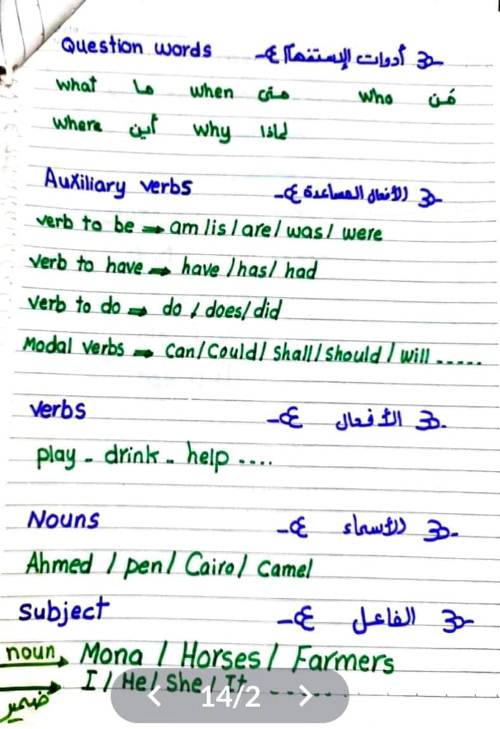 Question words أدوات الإستفهام
what ما when متى who مَن
where أين why لماذا
Auxiliary verbs الأفعال المساعدة
verb to be → am / is / are / was / were
verb to have → have / has / had
verb to do → do / does / did
Modal verbs → can / Could / Shall / should / will .....
verbs الأفعال
play - drink - help ....
Nouns الأسماء
Ahmed / pen / Cairo / Camel
subject الفاعل
noun → Mona / Horses / Farmers
ضمير → I / He / She / It ......
14/2